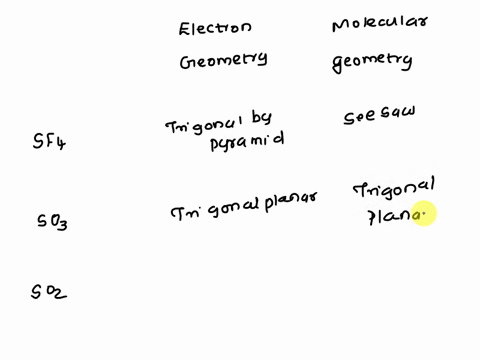 Electron Molecular
Geometry geometry
SF4 Trigonal by pyramid See saw
SO3 Trigonal planar Trigonal plana
SO2